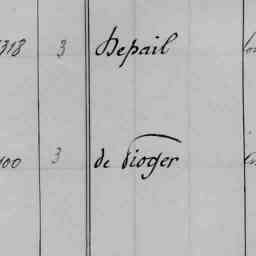 318 3 Depail
100 3 de Pioger